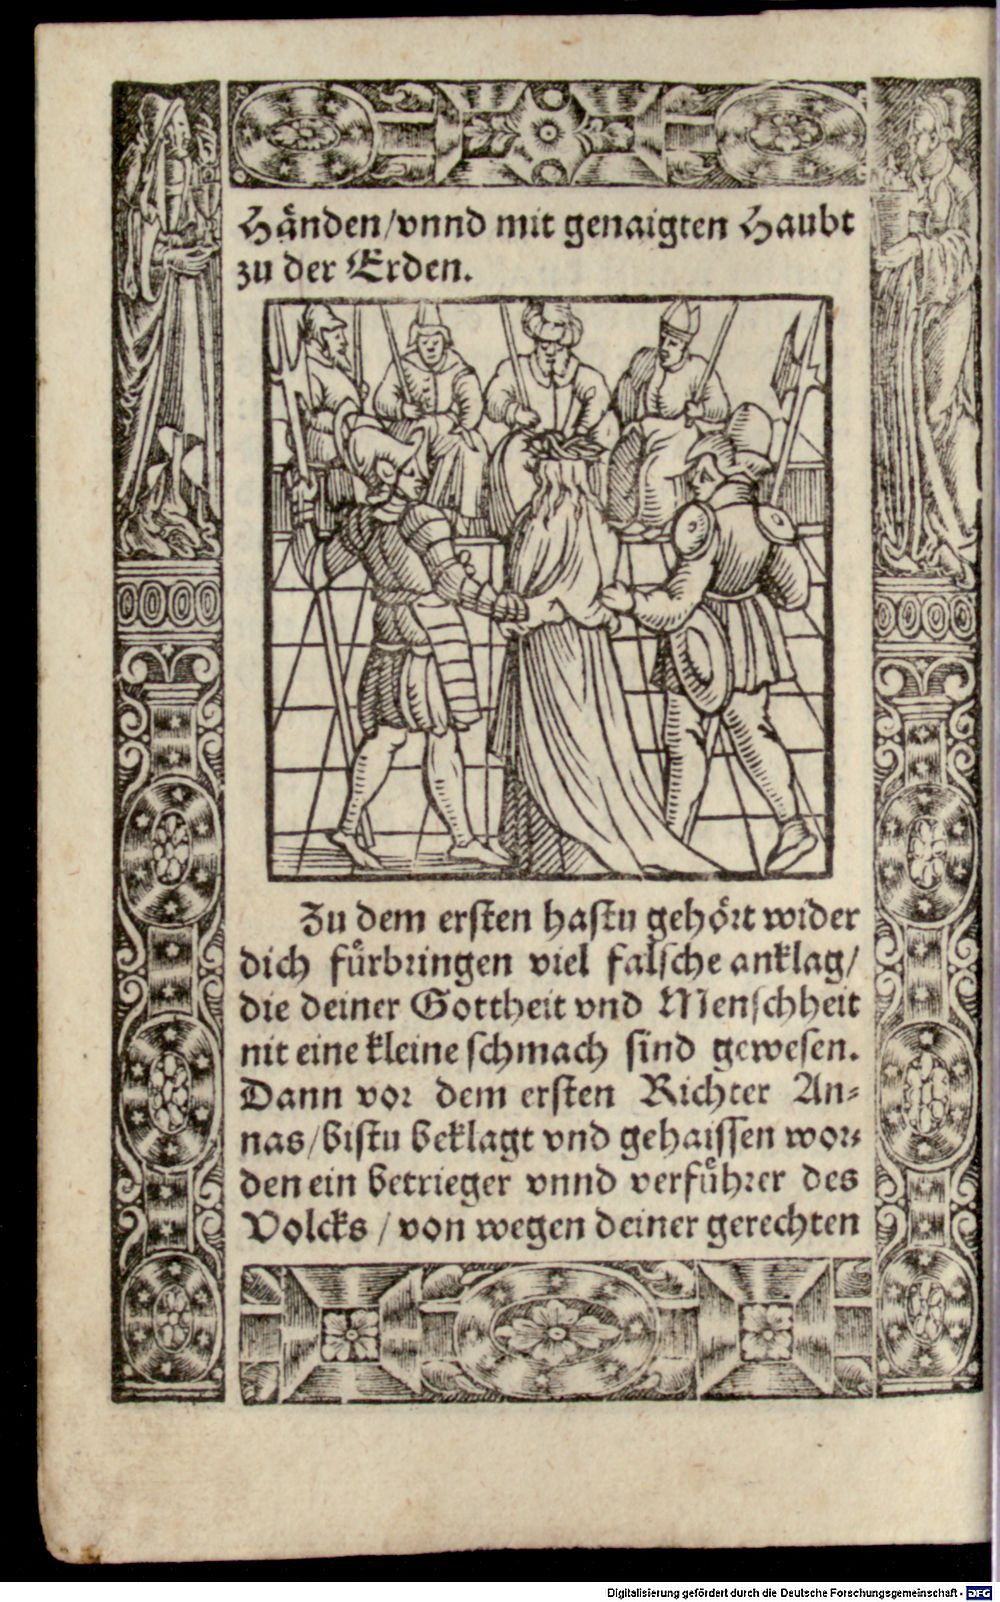 Händen/vnnd mit genaigten Haubt
zu der Erden.
Zu dem ersten hastu gehört wider
dich fürbringen viel falsche anklag/
die deiner Gottheit vnd Menschheit
nit eine kleine schmach sind gewesen.
Dann vor dem ersten Richter An-
nas/bistu beklagt vnd gehaissen wor-
den ein betrieger vnnd verführer des
Volcks/von wegen deiner gerechten
Digitalisierung gefördert durch die Deutsche Forschungsgemeinschaft - DFG